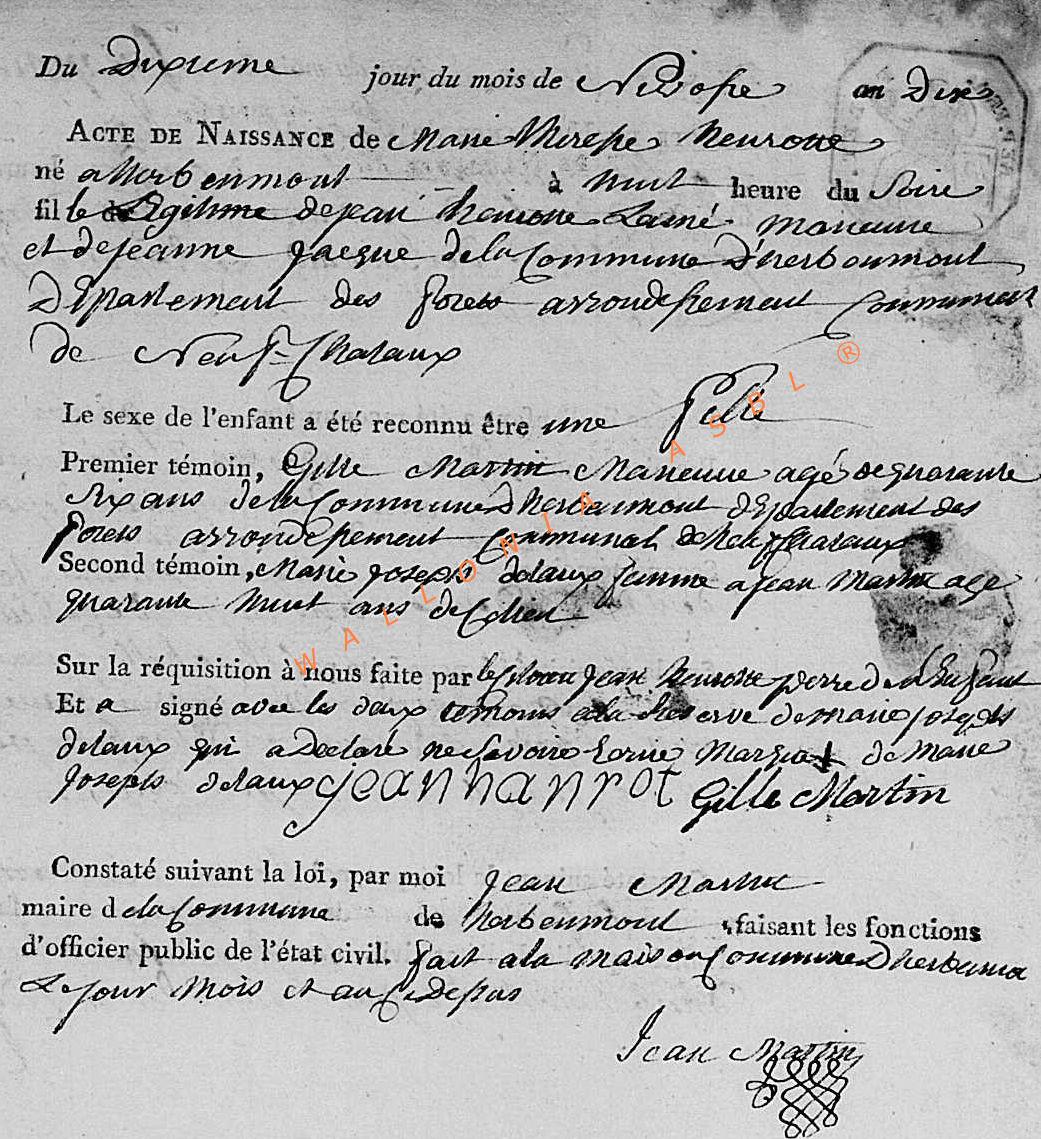 Du Dixieme jour du mois de Nivose an Dix
ACTE DE NAISSANCE de Marie Therese Henrotte
né a herbeumont à huit heure du Soire
fille Legitime de jean henrotte Lainé Maneuvre
et de jeanne jacque de la Commune D'herbeumont
Département des forets arrondissement Communal
de Neufchataux
Le sexe de l'enfant a été reconnu être une fille
Premier témoin, Gille Martin Maneuvre agé de quarante
Six ans de la Commune D'herbeumont département des
forets arrondissement Communal de Neuffchataux
Second témoin, Marie joseph delaux femme a jean Martin agé
quarante huit ans de Ce lieu
Sur la réquisition à nous faite par le Citoien jean henrotte perre de l'Enfant
Et a signé avec les deux temoins a la Reserve de marie joseph
delaux qui a Declaré ne Savoire Ecrire Marque + de Marie
joseph delaux jean hanrot Gille Martin
Constaté suivant la loi, par moi jean Martin
maire de la Commune de herbeumont, faisant les fonctions
d'officier public de l'état civil. fait a la maison Commune D'herbeumont
Le jour Mois et an Ci Dessus
Jean Martin
WALLONIA ASBL ®